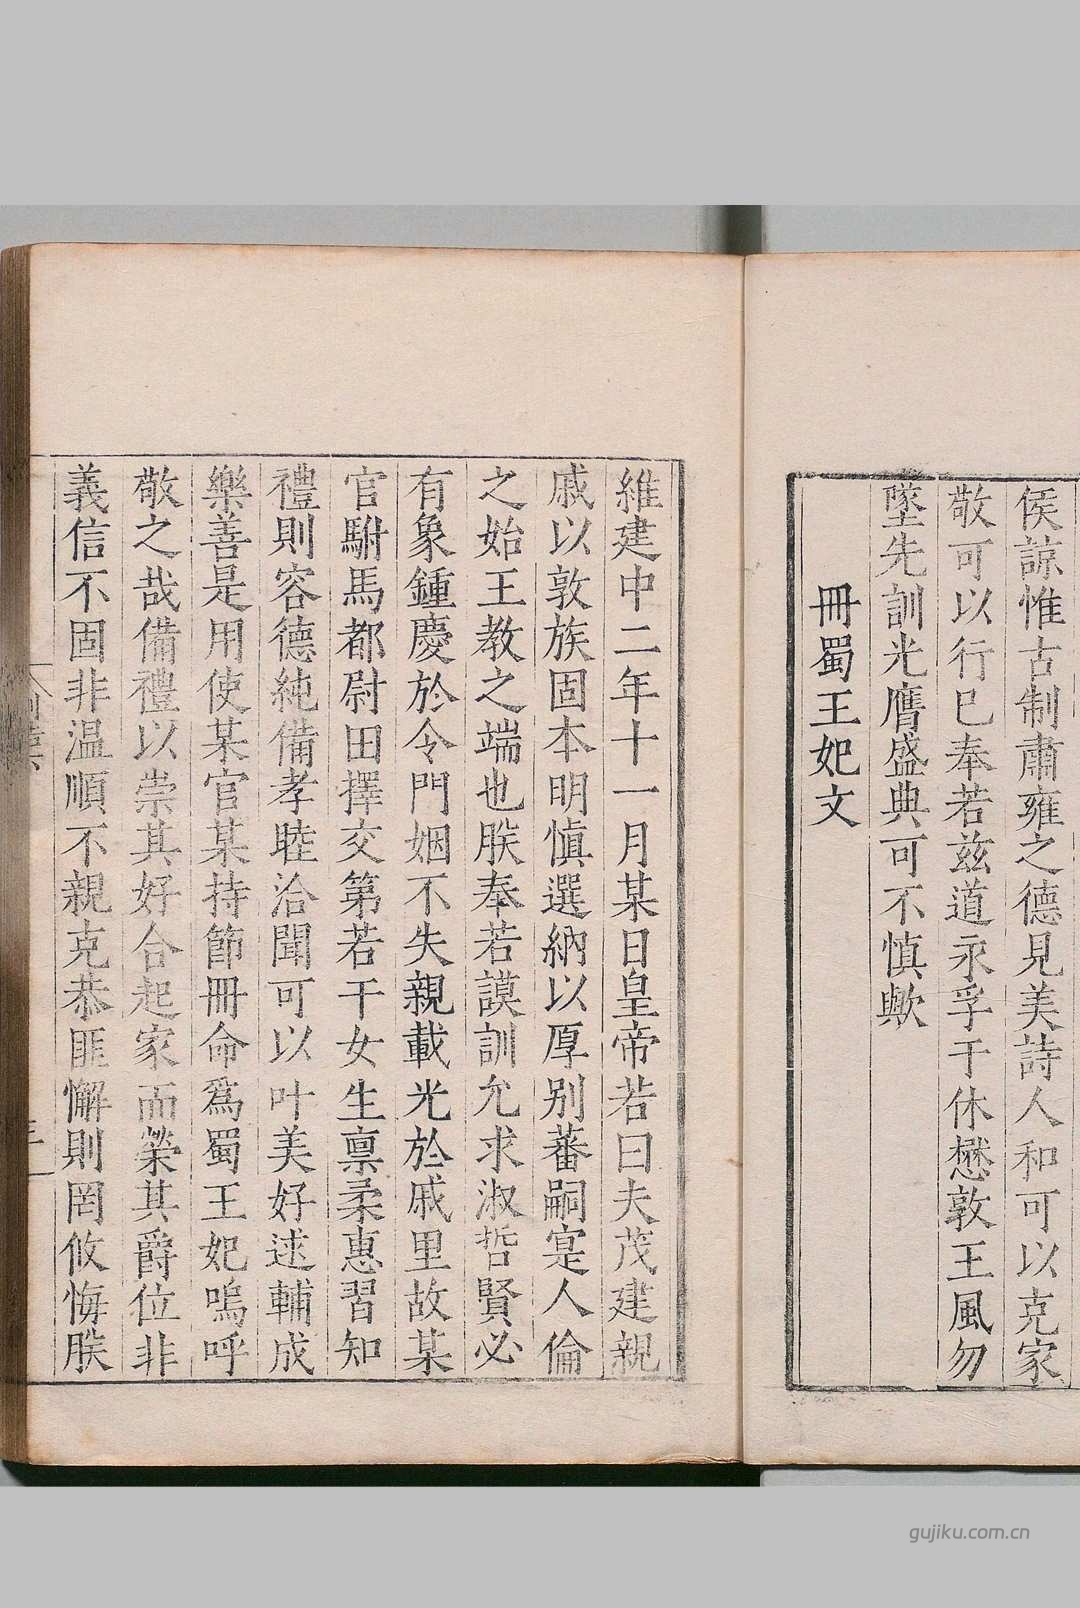 侯諒惟古制肅雍之德見美詩人和可以克家
敬可以行已奉若兹道永孚于休懋敦王風勿
墜先訓光膺盛典可不慎歟
冊蜀王妃文
維建中二年十一月某日皇帝若曰夫茂建親
戚以敦族固本明慎選納以厚别蕃嗣寔人倫
之始王教之端也朕奉若謨訓允求淑哲賢必
有象鍾慶於令門姻不失親載光於戚里故某
官駙馬都尉田擇交第若干女生禀柔惠習知
禮則容德純備孝睦洽聞可以叶美好逑輔成
樂善是用使某官某持節冊命爲蜀王妃嗚呼
敬之哉備禮以崇其好合起家而榮其爵位非
義信不固非温順不親克恭匪懈則罔攸悔朕
gujiku.com.cn